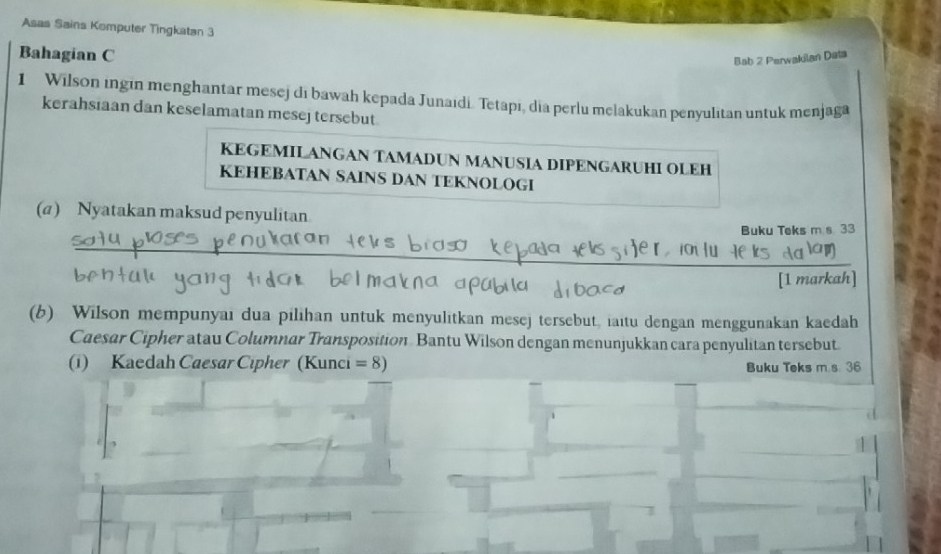 Asas Sains Komputer Tingkatan 3
Bab 2 Perwakilan Data
Bahagian C
1 Wilson ingin menghantar mesej di bawah kepada Junaidi. Tetapi, dia perlu melakukan penyulitan untuk menjaga
kerahsiaan dan keselamatan mesej tersebut.
KEGEMILANGAN TAMADUN MANUSIA DIPENGARUHI OLEH
KEHEBATAN SAINS DAN TEKNOLOGI
(a) Nyatakan maksud penyulitan.
Buku Teks m.s. 33
satu proses penukaran teks biasa kepada teks sifer, iaitu teks dalam
bentuk yang tidak belmakna apabila dibaca
[1 markah]
(b) Wilson mempunyai dua pilihan untuk menyulitkan mesej tersebut, iaitu dengan menggunakan kaedah
Caesar Cipher atau Columnar Transposition. Bantu Wilson dengan menunjukkan cara penyulitan tersebut.
(i) Kaedah Caesar Cipher (Kunci = 8)
Buku Teks m.s. 36